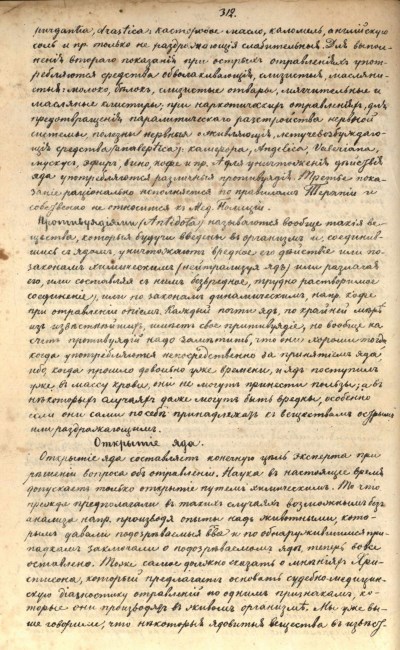 312.
purgantia, drastica: касторовое масло, каломель, англійскую
соль и пр. только не раздражающія слабительныя. Для выпол-
ненія втораго показанія при острыхъ отравленіяхъ упот-
ребляются средства обволакивающія, слизистыя, маслянис-
тыя: молоко, бѣлокъ, слизистые отвары, мягчительные и
масляные клистиры; при наркотическихъ отравленіяхъ, для
предотвращенія паралитическаго разстройства нервной
системы, полезны нервныя оживляющія, летучевозбуждаю-
щія средства (analeptica): камфора, Angelica, Valeriana,
мускусъ, эфиръ, вино, кофе и пр. А для уничтоженія дѣйствія
яда употребляются различныя противуядія. Третье пока-
заніе раціонально исполняется по правиламъ Терапіи и
собственно не относится къ Мед. Полиціи.
Противуядіями (Antidota) называются вообще такія ве-
щества, которыя будучи введены въ организмъ и, соединив-
шись съ ядомъ, уничтожаютъ вредное его дѣйствіе или по
законамъ химическимъ (нейтрализуя ядъ) или разлагая
его, или составляя съ нимъ безвредное, трудно растворимое
соединеніе, или по законамъ динамическимъ, напр. кофе
при отравленіи опіемъ. Каждый почти ядъ, по крайней мѣрѣ
изъ извѣстнѣйшихъ, имѣетъ свое противуядіе, но вообще на
счетъ противуядій надо замѣтить, что они хороши тогда,
когда употребляются непосредственно за принятіемъ яда
ибо, когда прошло довольно уже времени, и ядъ поступилъ
уже въ массу крови, они не могутъ принести пользы; а въ
нѣкоторыхъ случаяхъ даже могутъ быть вредны, особенно
если они сами по себѣ принадлежатъ къ веществамъ острымъ
или раздражающимъ.
Открытіе яда.
Открытіе яда составляетъ конечную цѣль эксперта при
рѣшеніи вопроса объ отравленіи. Наука въ настоящее время
допускаетъ только открытіе путемъ химическимъ. То что
прежде предполагали въ такихъ случаяхъ возможнымъ безъ
анализа напр. производя опыты надъ животными, кото-
рымъ давали подозрѣваемыя и по обнаружившимся при-
падкамъ заключали о подозрѣваемомъ ядѣ, теперь вовсе
оставлено. Тоже самое должно сказать о мнѣніяхъ Хри-
стисона, который предлагаетъ основать судебно-медицин-
скую діагностику отравленій по однимъ признакамъ, ко-
торые они производятъ въ живомъ организмѣ. Мы уже вы-
ше говорили, что нѣкоторыя ядовитыя вещества въ